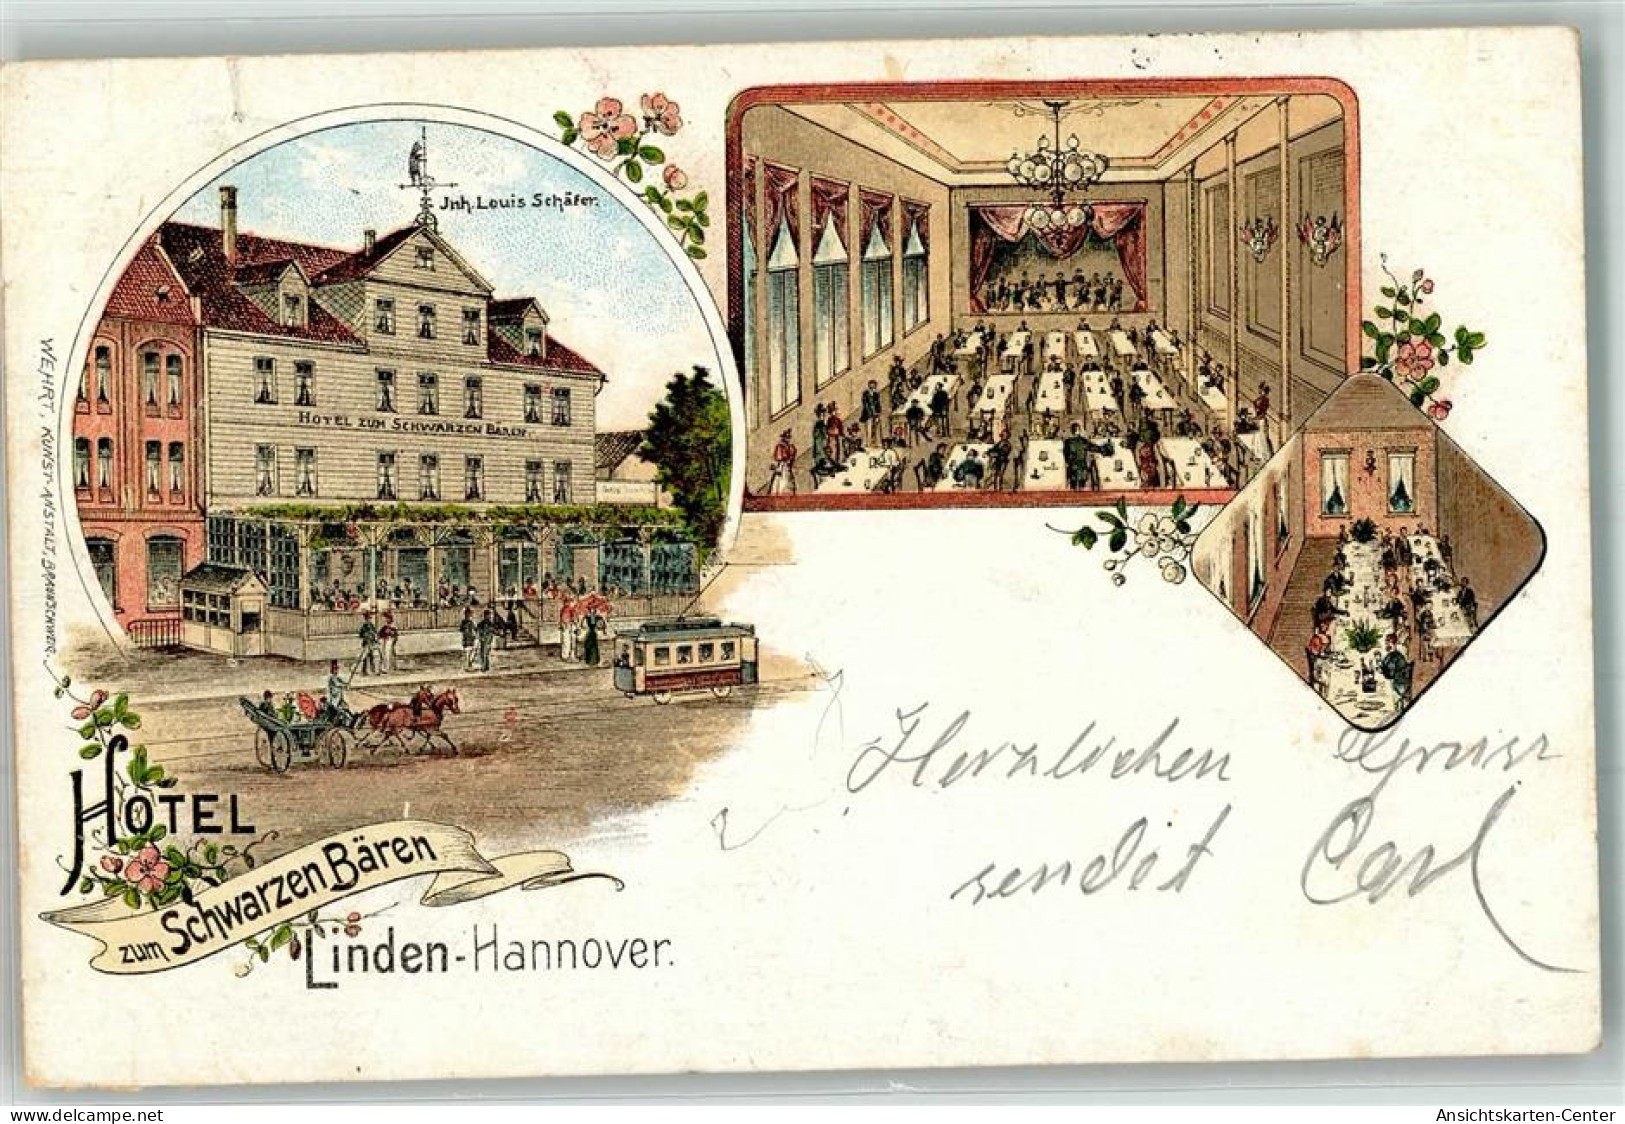 Jnh. Louis Schäfer.
HOTEL ZUM SCHWARZEN BÄREN.
WEHRT, KUNST-ANSTALT, BRAUNSCHWEIG.
HOTEL
zum Schwarzen Bären
Linden-Hannover.
Herzlichen Gruss
sendet Carl
www.delcampe.net
Ansichtskarten-Center